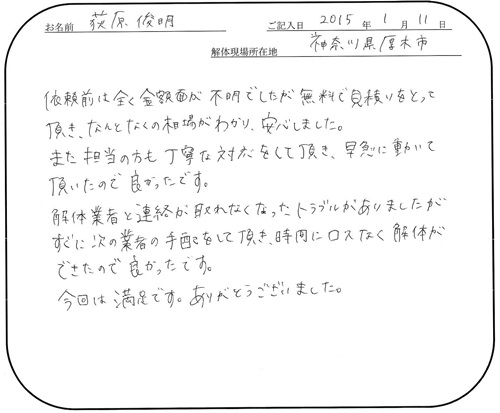 お名前 荻原俊明 ご記入日 2015年1月11日
解体現場所在地 神奈川県厚木市
依頼前は全く金額面が不明でしたが無料で見積りをとって
頂き、なんとなくの相場がわかり、安心しました。
また担当の方も丁寧な対応をして頂き、早急に動いて
頂いたので良かったです。
解体業者と連絡が取れなくなったトラブルがありましたが
すぐに次の業者の手配をして頂き、時間にロスなく解体が
できたので良かったです。
今回は満足です。ありがとうございました。